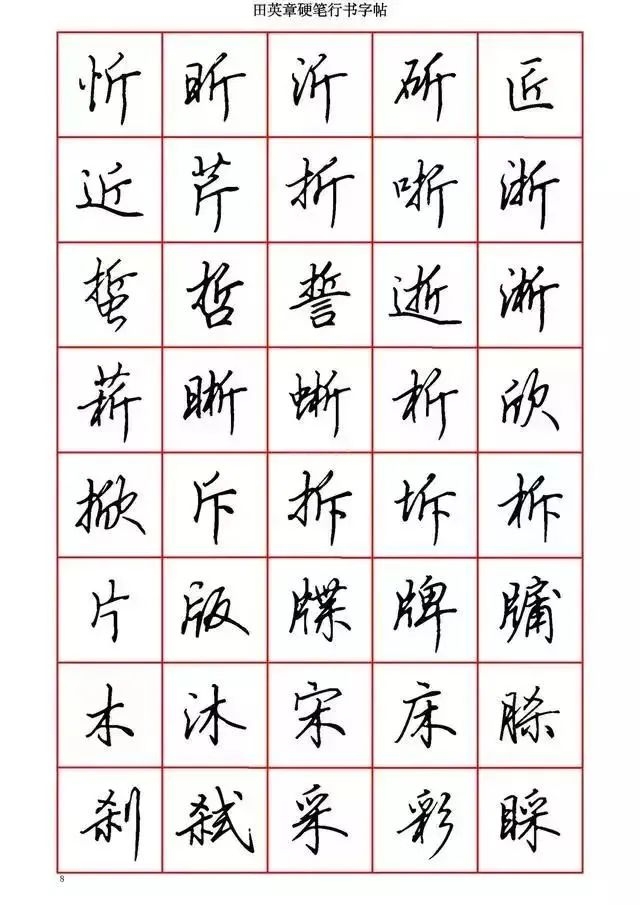 田英章硬笔行书字帖
忻昕沂斫匠
近芹折哳浙
蜇哲誓逝淅
菥晰蜥析欣
掀斥拆坼柝
片版牒牌牖
木沐宋床脎
刹弑采彩睬
8